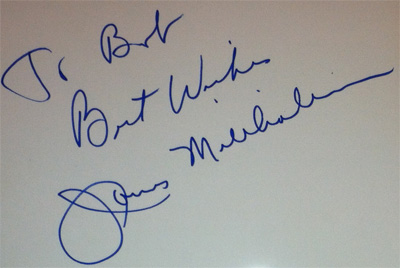 To Bob
Best Wishes
James Millhollin